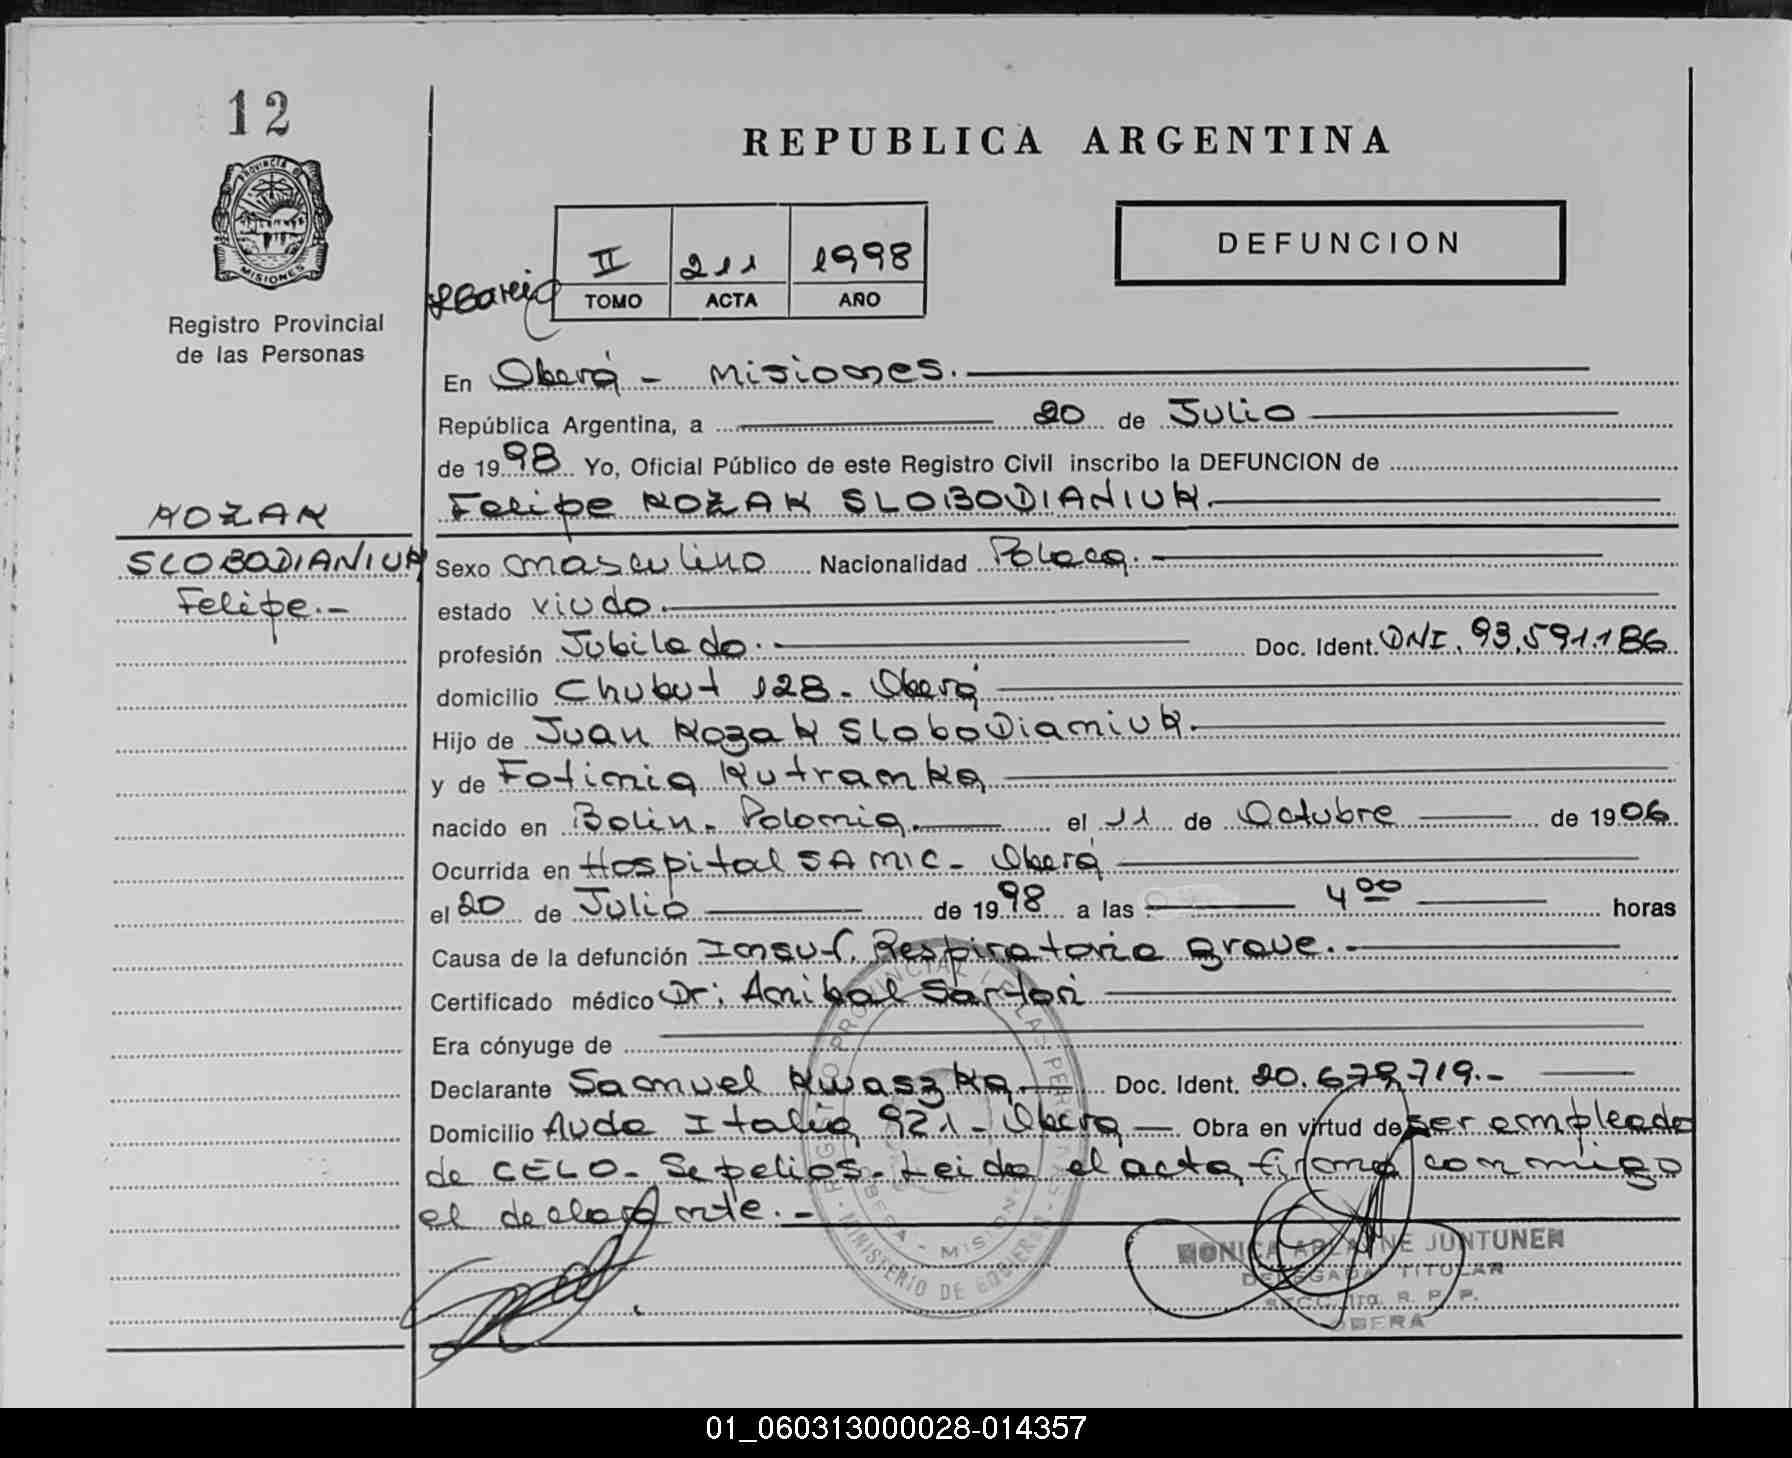 12
PROVINCIA DE
MISIONES
Registro Provincial
de las Personas
KOZAK
SLOBODIANIUK
Felipe.-
REPUBLICA ARGENTINA
DEFUNCION
II 211 1998
TOMO ACTA AÑO
En Oberá - Misiones.
República Argentina, a 20 de Julio
de 1998 Yo, Oficial Público de este Registro Civil inscribo la DEFUNCION de
Felipe KOZAK SLOBODIANIUK.
Sexo masculino Nacionalidad Polaca.-
estado viudo.
profesión Jubilado.- Doc. Ident. DNI. 93.591.186
domicilio Chubut 128 - Oberá
Hijo de Juan Kozak SLoboDianiuk.
y de Fotinia Kutranka
nacido en Bolin - Polonia. el 11 de Octubre de 1906
Ocurrida en Hospital SAMIC - Oberá
el 20 de Julio de 1998 a las 4 00 horas
Causa de la defunción Insuf. Respiratoria grave.-
Certificado médico Dr: Anibal Sartori
Era cónyuge de
Declarante Samuel Kwaszka Doc. Ident. 20.679.719.-
Domicilio Avda Italia 921 - Oberá Obra en virtud de ser empleado
de CELO - Sepelios. Leida el acta, firma conmigo
el declarante.-
REGISTRO PROVINCIAL DE LAS PERSONAS
OBERA - MISIONES
MINISTERIO DE GOBIERNO
JUNTUNEN
DELEGADA TITULAR
R. P. P.
OBERA
01_060313000028-014357